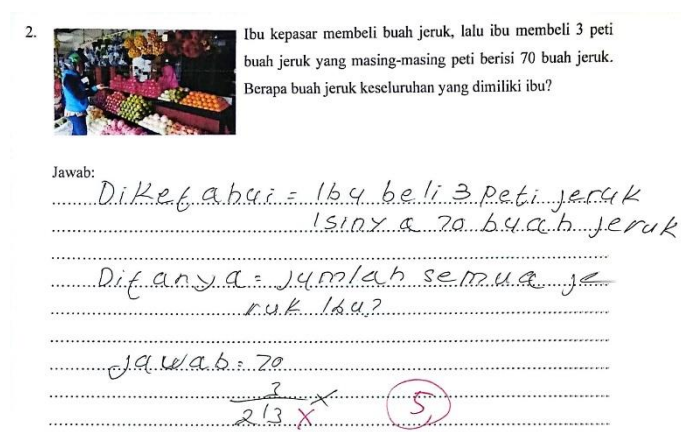 2. Ibu kepasar membeli buah jeruk, lalu ibu membeli 3 peti
buah jeruk yang masing-masing peti berisi 70 buah jeruk.
Berapa buah jeruk keseluruhan yang dimiliki ibu?
Jawab:
Diketahui = Ibu beli 3 peti jeruk
Isinya 70 buah jeruk
Ditanya = Jumlah semua je
ruk Ibu?
Jawab = 70
3 x
213 x
5